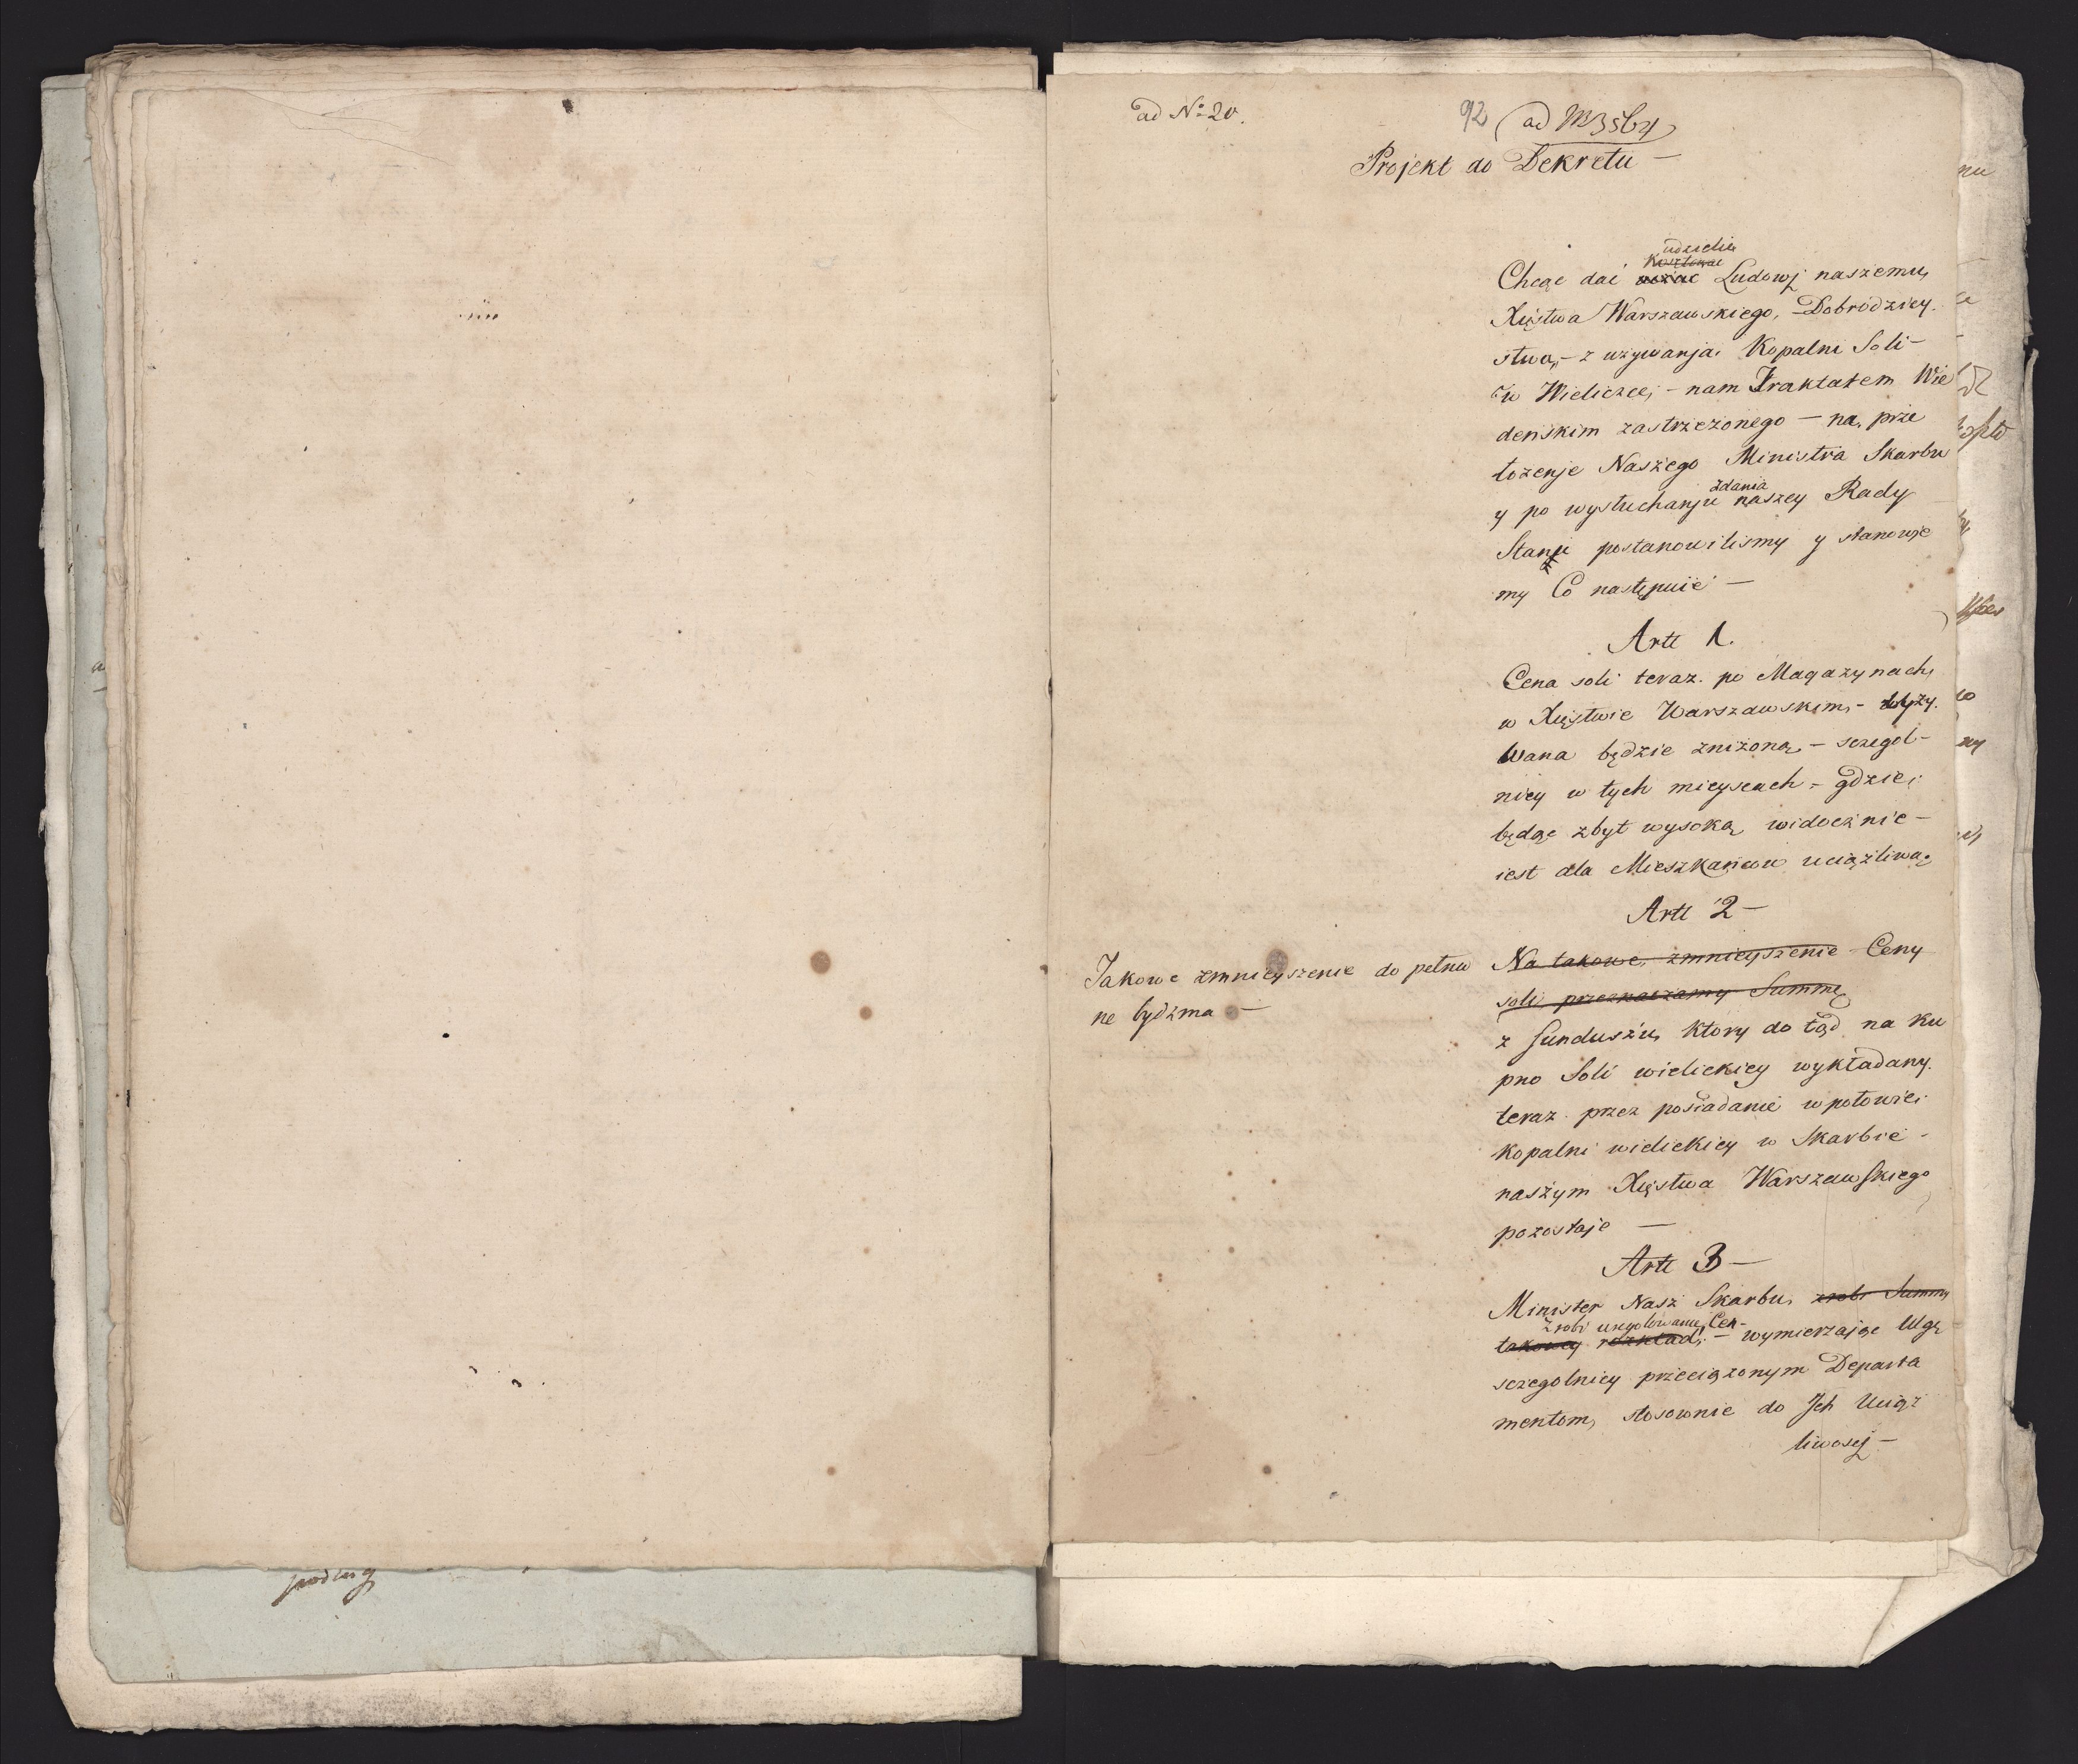 ad No 20.
92
Projekt do Dekretu —
udzielić
Kosztować
Chcąc dać uczuć Ludowj naszemu,
Xięstwa Warszawskiego, Dobrodziey-
stwa, – z używanja Kopalni Soli –
w Wieliczce, – nam Traktatem Wie
deńskim zastrzeżonego – na, prze
łożenje Naszego Ministra Skarbu
zdania
y po wysłuchanju naszey Rady
Stanu postanowilismy y stanowje
my Co następuie —
Artt 1.
Cena soli teraz po Magazynach,
w Xięstwie Warszawskim, – używana
Wana będzie zniżoną, – szegol-
niey w tych mieyscach – gdzie,
będąc zbyt wysoką widocznie –
iest dla Mieszkańcow uciążliwą,
Artt 2 —
Takowe zmnieyszenie do pełnio
ne bydź ma —
Na takowe, zmnieyszenie Ceny
soli przeznaczamy Summę
z funduszu, ktory do tąd na ku
pno Soli wielickiey wykładany.
teraz przez posiadanie w połowie
kopalni wielickiey w Skarbie –
naszym Xięstwa Warszawskiego
pozostaje —
Artt 3 —
Minister Nasz Skarbu, zrobi Summy
zrobi uregulowanie, Cen –
takowey rozkład, – wymierzając Ulgę
szegolniey przeciążonym Departa
mentom, stosownie do Jch Uciąż
liwoscj —
podług